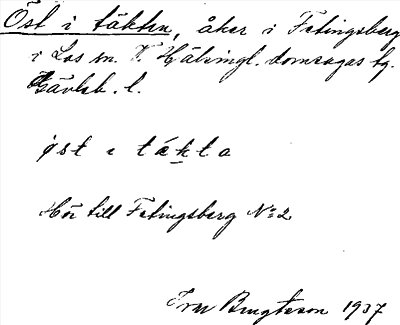 Öst i täkten, åker i Fetingsberg
i Los sn. V. Hälsingl. domsagas tg.
Gävleb. l.
øst ı täkta
Hör till Fetingsberg No 2
Ivar Bengtsson 1937